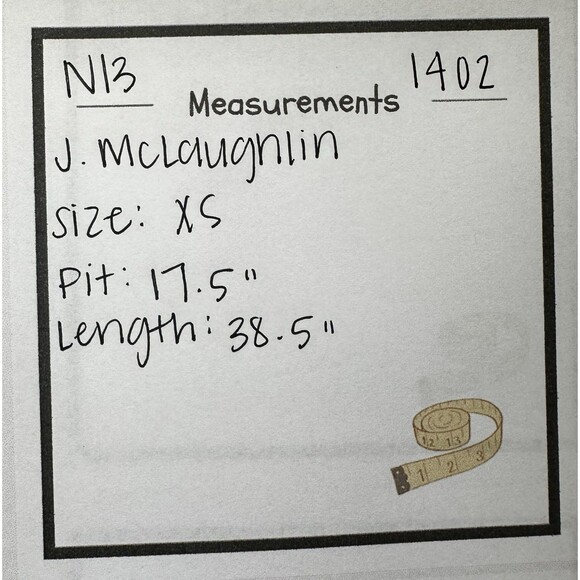 N13 1402
Measurements
J. McLaughlin
Size: XS
Pit: 17.5"
Length: 38.5"
12 13
1 2 3